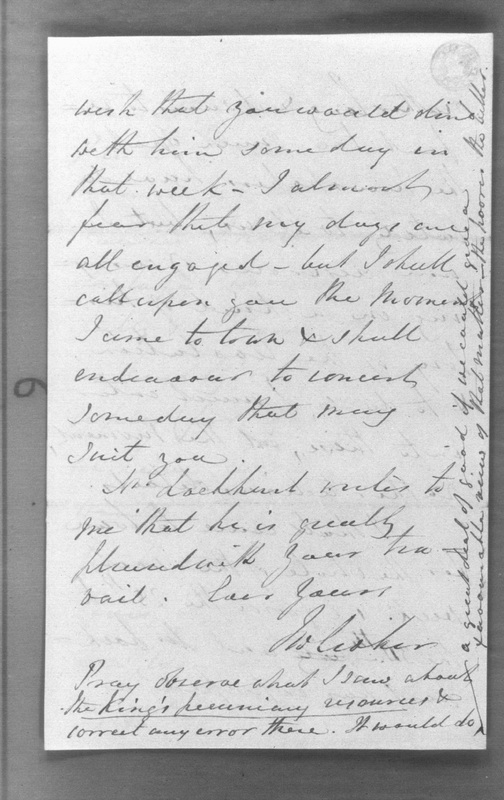 wish that you would dine
with him some day in
that week – I almost
fear that my days are
all engaged – but I shall
call upon you the moment
I come to town & shall
endeavour to concert
some day that may
suit you.
Mr Lockhart writes to
me that he is greatly
pleased with your
Ever Yours
JW Croker
Pray observe what I say about
the King's pecuniary resources &
correct any error there. It would do
a great deal of good if we could give a
favourable view of that matter – the sooner the better.
6